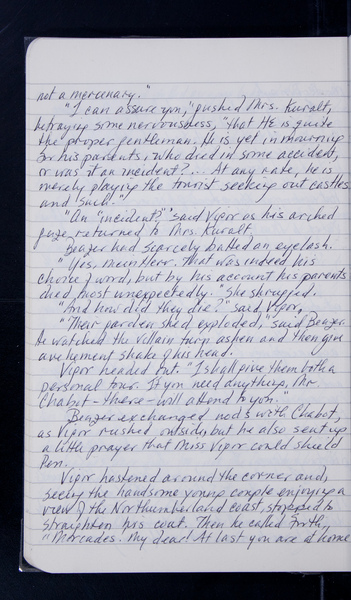 not a mercenary."
"I can assure you," pushed Mrs. Kuralt,
betraying some nervousness, "that He is quite
the proper gentleman. He is yet in mourning
for his parents, who died in some accident,
or was it an incident?... At any rate, he is
merely playing the tourist seeking out castles
and such."
"An 'incident?'" said Vipor as his arched
gaze returned to Mrs. Kuralt.
Beazer had scarcely batted an eyelash.
"Yes, mein Herr. That was indeed his
choice of word, but by his account his parents
died most unexpectedly." She shrugged.
"And how did they die?" said Vipor.
"Their garden shed exploded," said Beazer.
He watched the villain turn ashen and then give
a vehement shake of his head.
Vipor headed out. "I shall give them both a
personal tour. If you need anything, Mr.
Chabot - there - will attend to you."
Beazer exchanged nods with Chabot,
as Vipor rushed outside, but he also sent up
a little prayer that Miss Vipor could shield
Pen.
Vipor hastened around the corner and,
seeing the handsome young couple enjoying a
view of the Northumberland coast, stopped to
straighten his coat. Then he called forth,
"Mercades. My dear! At last you are at home